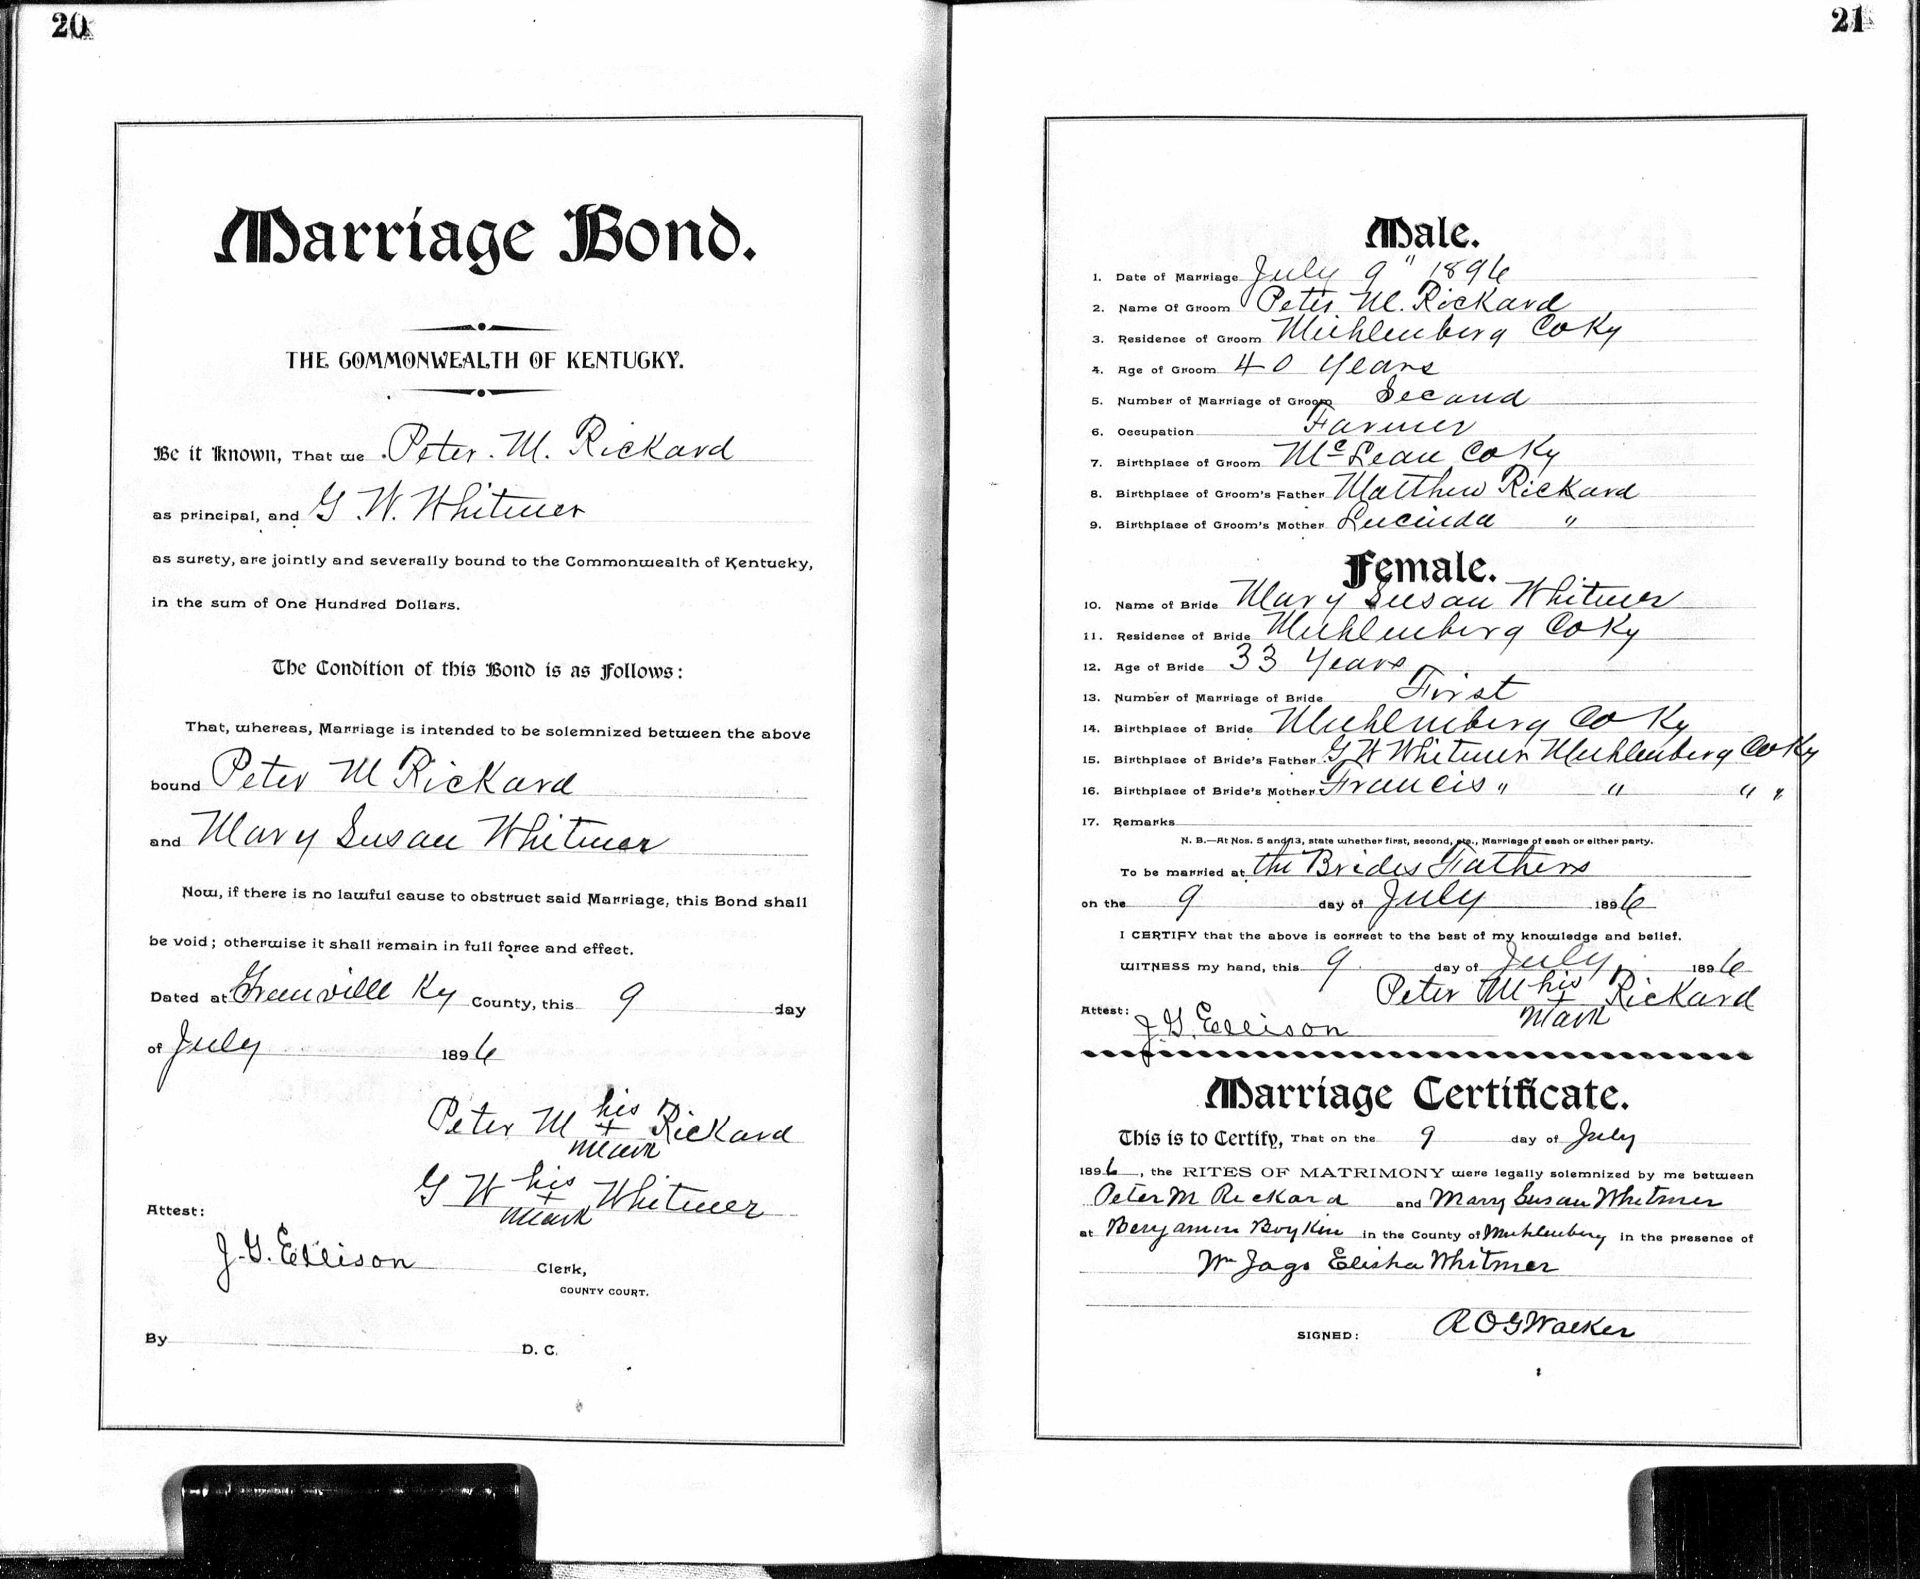 20
Marriage Bond.
THE COMMONWEALTH OF KENTUCKY.
Be it Known, That we Peter. M. Rickard
as principal, and G. W. Whitmer
as surety, are jointly and severally bound to the Commonwealth of Kentucky,
in the sum of One Hundred Dollars.
The Condition of this Bond is as Follows:
That, whereas, Marriage is intended to be solemnized between the above
bound Peter M Rickard
and Mary Susan Whitmer
Now, if there is no lawful cause to obstruct said Marriage, this Bond shall
be void; otherwise it shall remain in full force and effect.
Dated at Greenville Ky County, this 9 day
of July 1896
Peter M his + mark Rickard
G W his + mark Whitmer
Attest:
J. G. Ellison Clerk,
COUNTY COURT.
By D. C.
21
Male.
1. Date of Marriage July 9" 1896
2. Name Of Groom Peter M. Rickard
3. Residence of Groom Muhlenberg Co Ky
4. Age of Groom 40 Years
5. Number of Marriage of Groom Second
6. Occupation Farmer
7. Birthplace of Groom McLean Co Ky
8. Birthplace of Groom's Father Matthew Rickard
9. Birthplace of Groom's Mother Lucinda "
Female.
10. Name of Bride Mary Susan Whitmer
11. Residence of Bride Muhlenberg Co Ky
12. Age of Bride 33 Years
13. Number of Marriage of Bride First
14. Birthplace of Bride Muhlenberg Co Ky
15. Birthplace of Bride's Father G W Whitmer Muhlenberg Co Ky
16. Birthplace of Bride's Mother Francis " " " "
17. Remarks
N. B.—At Nos. 5 and 13, state whether first, second, etc., Marriage of each or either party.
To be married at the Brides Fathers
on the 9 day of July 1896
I CERTIFY that the above is correct to the best of my knowledge and belief.
WITNESS my hand, this 9 day of July 1896
Peter M his + mark Rickard
Attest:
J. G. Ellison
Marriage Certificate.
This is to Certify, That on the 9 day of July
1896, the RITES OF MATRIMONY were legally solemnized by me between
Peter M Rickard and Mary Susan Whitmer
at Benjamin Boykin in the County of Muhlenberg in the presence of
Wm Jago Elisha Whitmer
SIGNED: R O G Walker